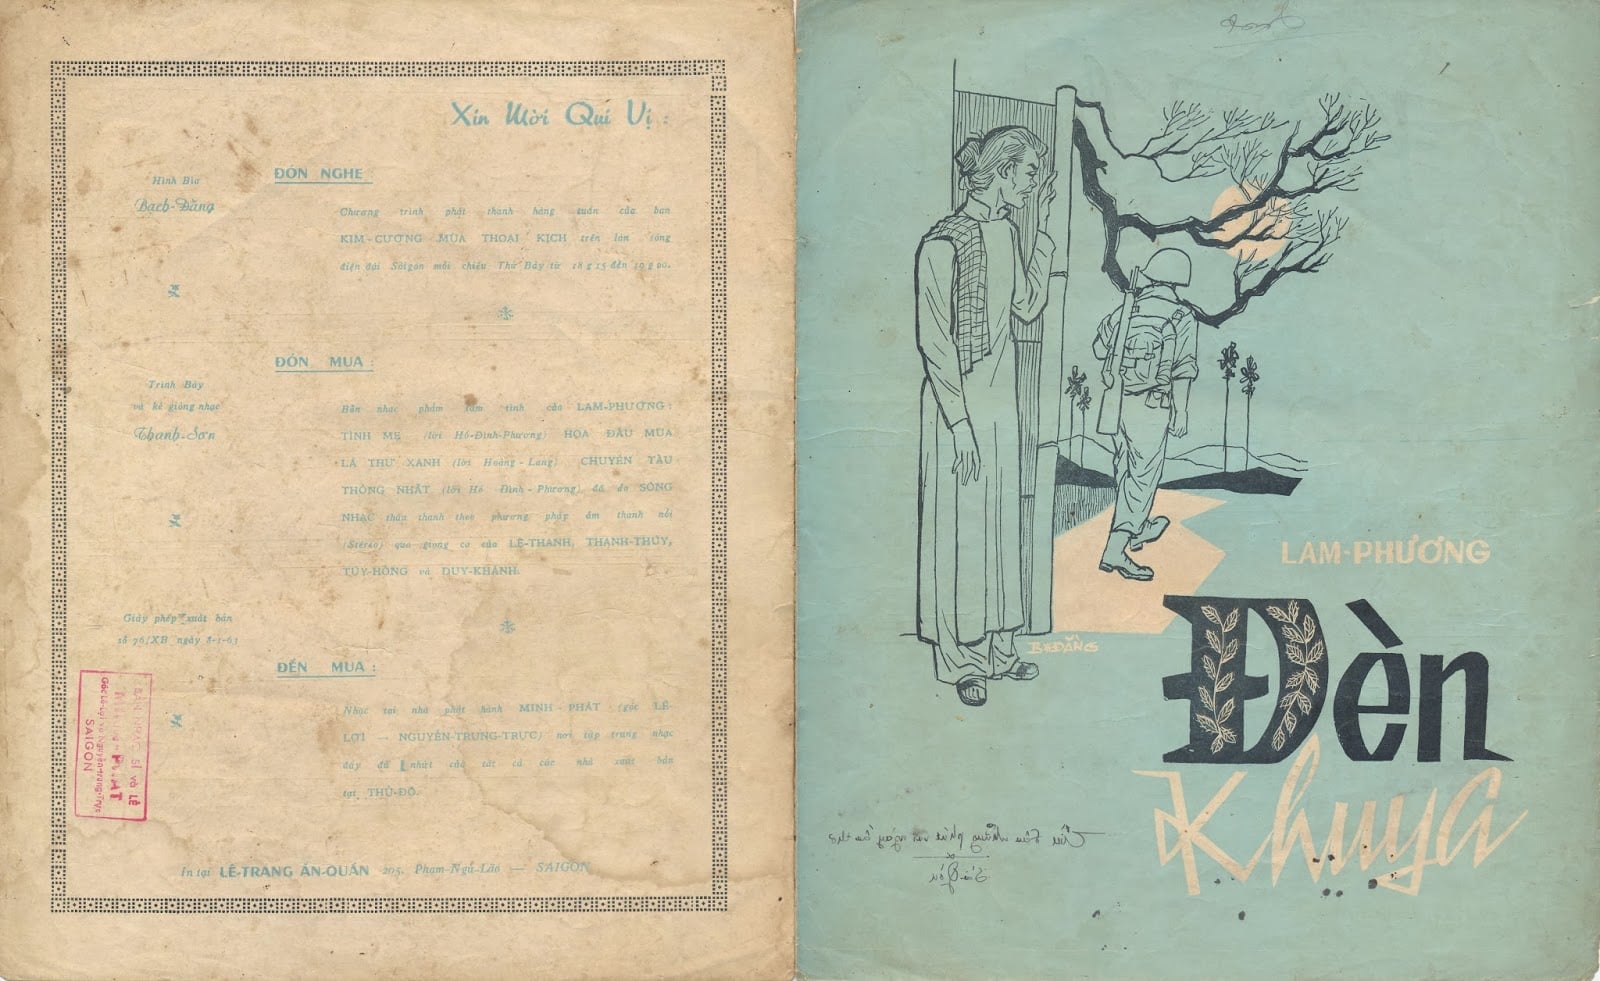 Xin Mời Quí Vị :
Hình Bìa
Bạch-Đằng
ĐÓN NGHE :
Chương trình phát thanh hàng tuần của ban
KIM-CƯƠNG MÙA THOẠI KỊCH trên làn sóng
điện đài Sàigòn mỗi chiều Thứ Bảy từ 18 g 15 đến 19 g 00.
ĐÓN MUA :
Trình Bày
và kẻ giòng nhạc
Thanh-Sơn
Bản nhạc phẩm tâm tình của LAM-PHƯƠNG :
TÌNH MẸ (lời Hồ-Đình-Phương) HOA ĐẦU MÙA
LÁ THƯ XANH (lời Hoàng-Lang) CHUYẾN TÀU
THỐNG NHẤT (lời Hồ Đình-Phương) đã do SÓNG
NHẠC thâu thanh theo phương pháp âm thanh nổi
(Stéréo) qua giọng ca của LỆ-THANH, THANH-THÚY,
TÚY-HỒNG và DUY-KHÁNH.
Giấy phép xuất bản
số 76/XB ngày 8-1-63
ĐẾN MUA :
Nhạc tại nhà phát hành MINH-PHÁT (góc LÊ-
LỢI — NGUYỄN-TRUNG-TRỰC) nơi tập trung nhạc
đầy đủ nhứt của tất cả các nhà xuất bản
tại THỦ-ĐÔ.
PHÁT
Góc Lê-Lợi và Nguyễn-trung-Trực
SAIGON
In tại LÊ-TRANG ẤN-QUÁN 205, Phạm-Ngũ-Lão — SAIGON
B.ĐẰNG
LAM-PHƯƠNG
Đèn
Khuya